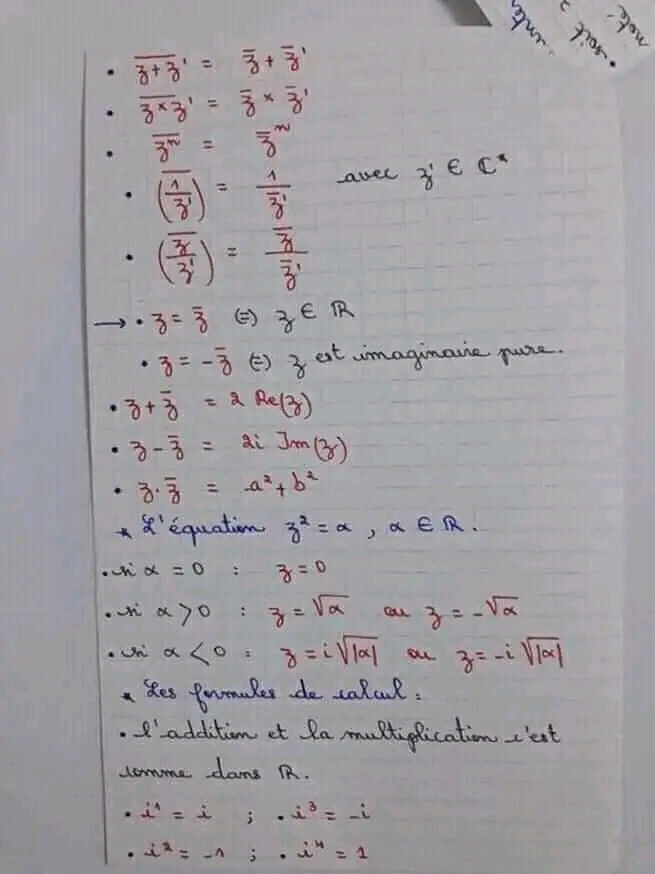 unter
• soit z
note
• \overline{z+z'} = \overline{z} + \overline{z}'
• \overline{z×z'} = \overline{z} × \overline{z}'
• \overline{z^n} = \overline{z}^n
• \overline{(1/z')} = 1/\overline{z}' avec z' ∈ ℂ*
• \overline{(z/z')} = \overline{z}/\overline{z}'
→ • z = \overline{z} (=) z ∈ ℝ
• z = -\overline{z} (=) z est imaginaire pure.
• z + \overline{z} = 2 Re(z)
• z - \overline{z} = 2i Im(z)
• z · \overline{z} = a² + b²
* L'équation z² = α , α ∈ ℝ.
• si α = 0 : z = 0
• si α > 0 : z = √α ou z = -√α
• si α < 0 : z = i√|α| ou z = -i√|α|
* Les formules de calcul :
• l'addition et la multiplication c'est
comme dans ℝ.
• i¹ = i ; • i³ = -i
• i² = -1 ; • i⁴ = 1